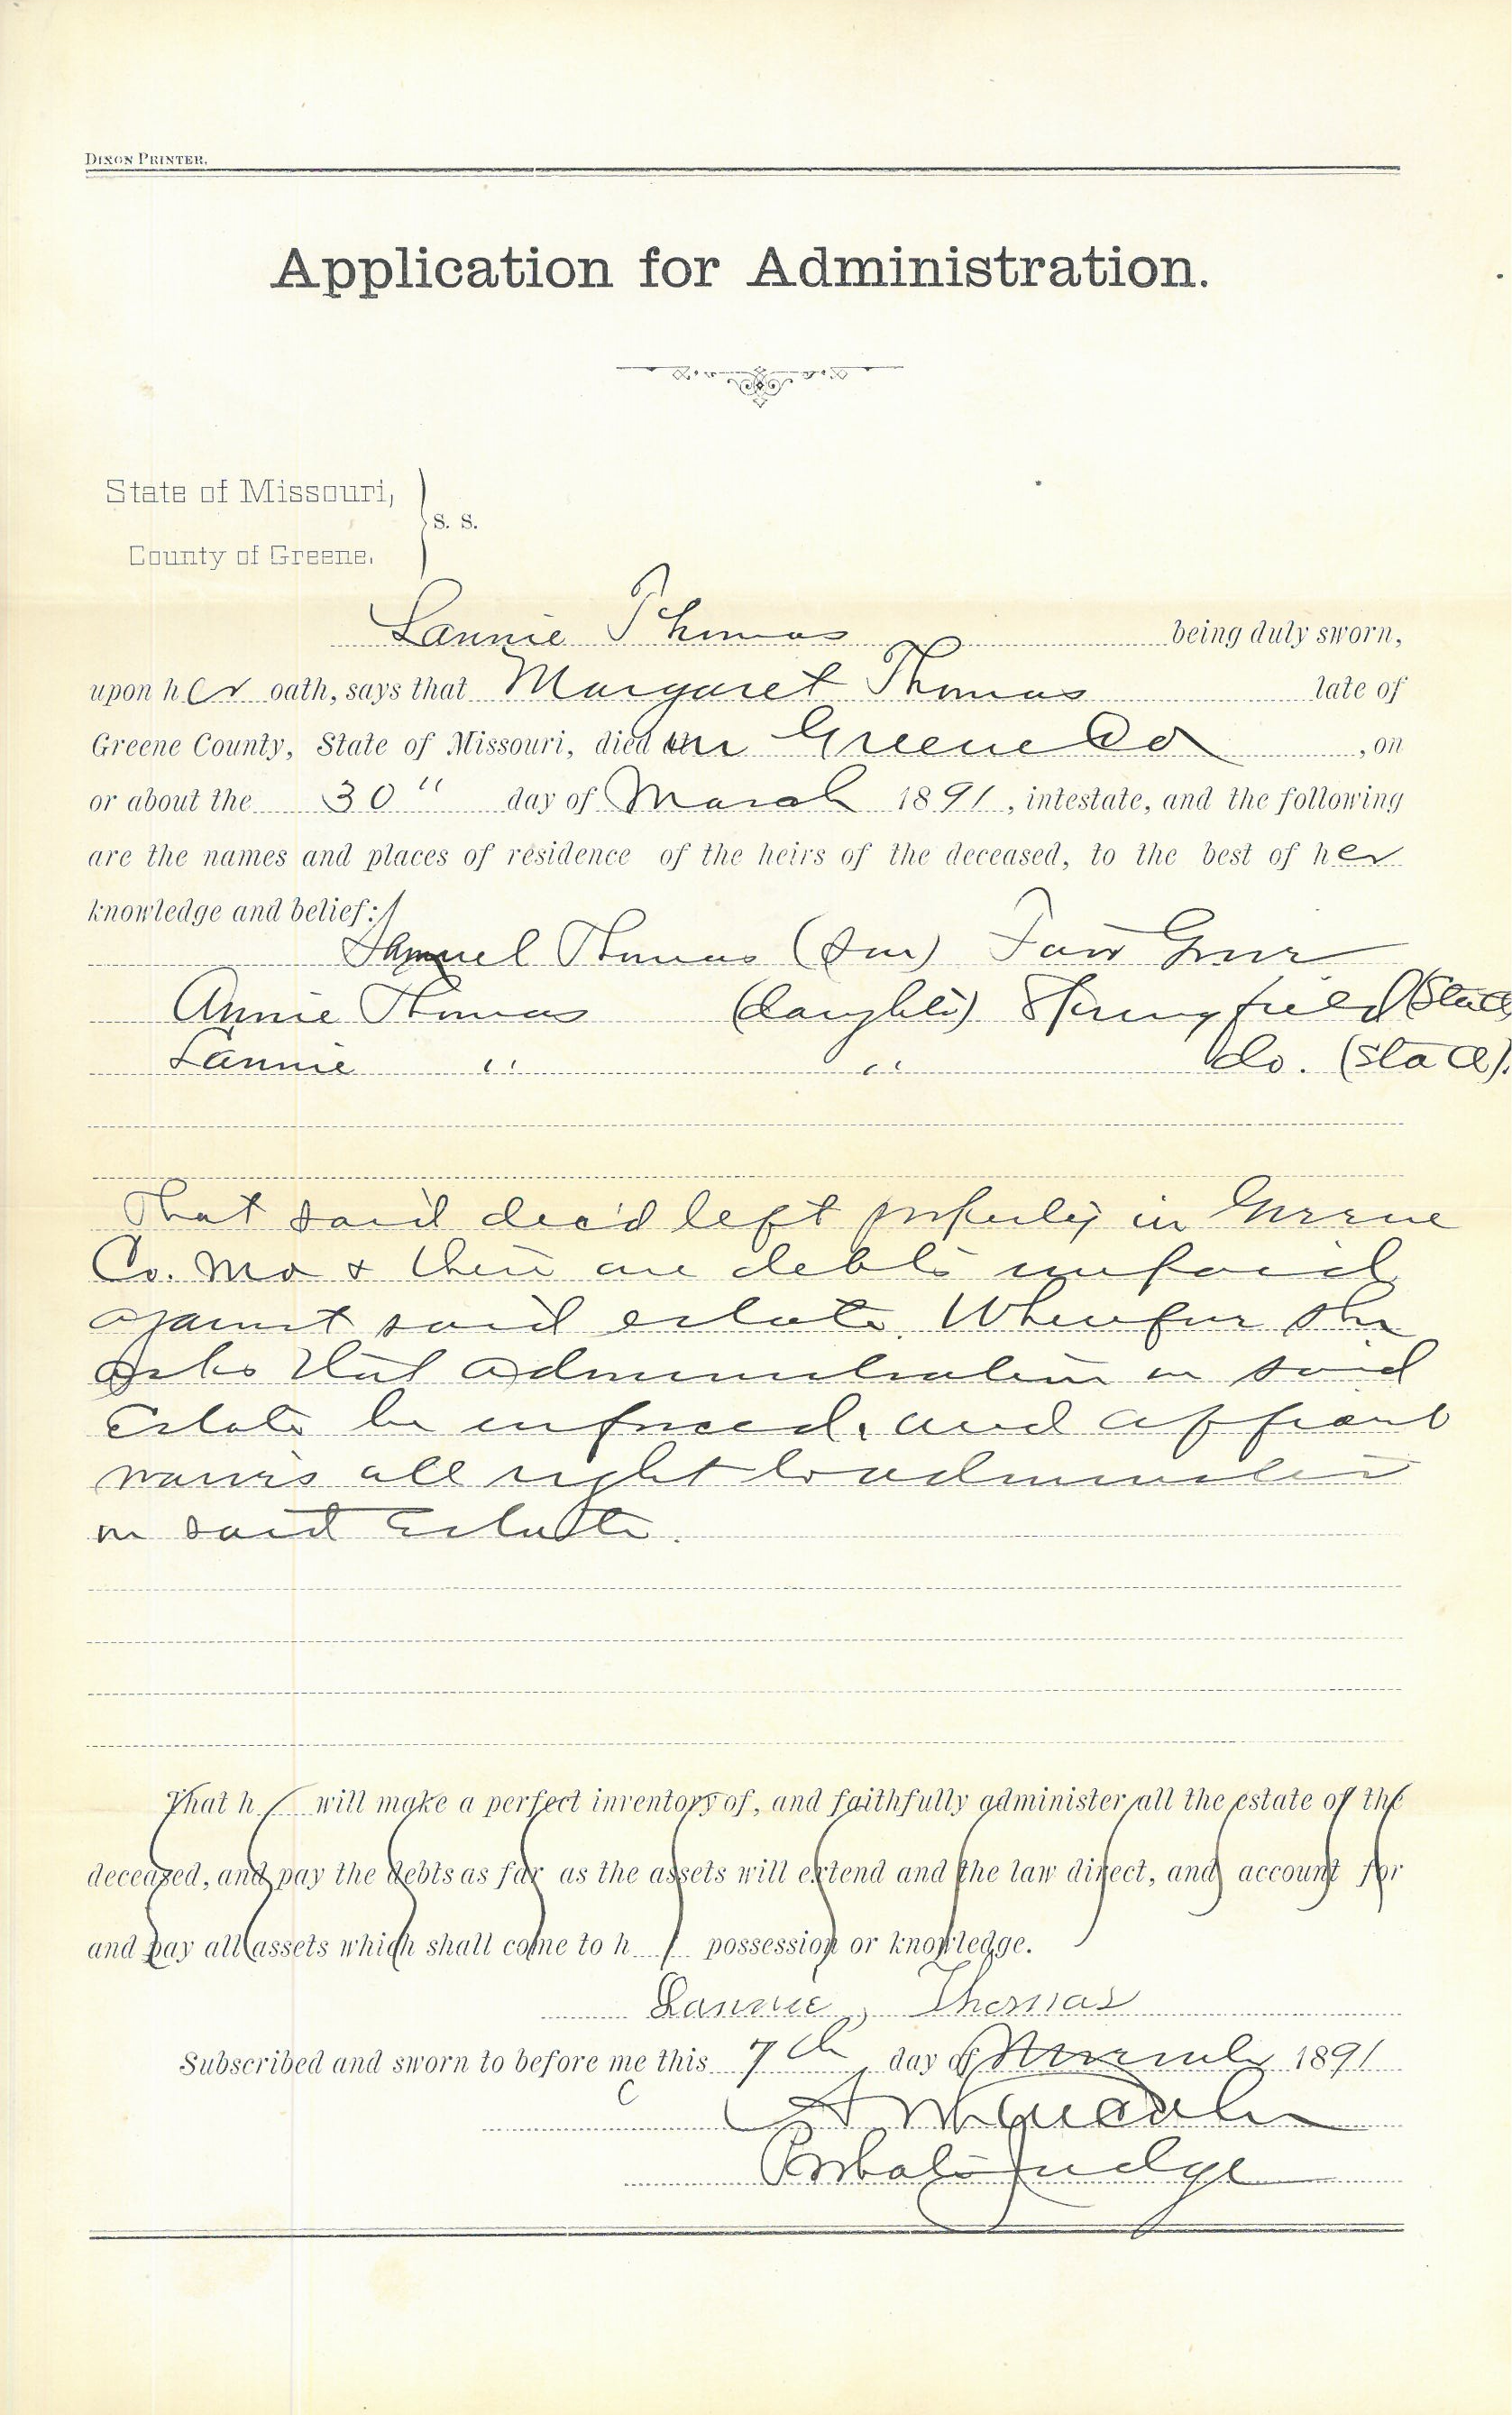 DIXON PRINTER.
Application for Administration.
State of Missouri,
S. S.
County of Greene.
Lannie Thomas being duly sworn,
upon her oath, says that Margaret Thomas late of
Greene County, State of Missouri, died in Greene Co , on
or about the 30" day of March 1891, intestate, and the following
are the names and places of residence of the heirs of the deceased, to the best of her
knowledge and belief:
Samuel Thomas (son) Fair Grove
Annie Thomas (daughter) Springfield (State
Lannie " " do. (State).
That said dec'd left property in Greene
Co. Mo & there are debts unpaid
against said estate. Wherefore she
asks that administration on said
Estate be enforced. and affiant
waives all right to administer
on said Estate.
That h will make a perfect inventory of, and faithfully administer all the estate of the
deceased, and pay the debts as far as the assets will extend and the law direct, and account for
and pay all assets which shall come to h possession or knowledge.
Lannie, Thomas
Subscribed and sworn to before me this 7th day of November 1891
Probate Judge